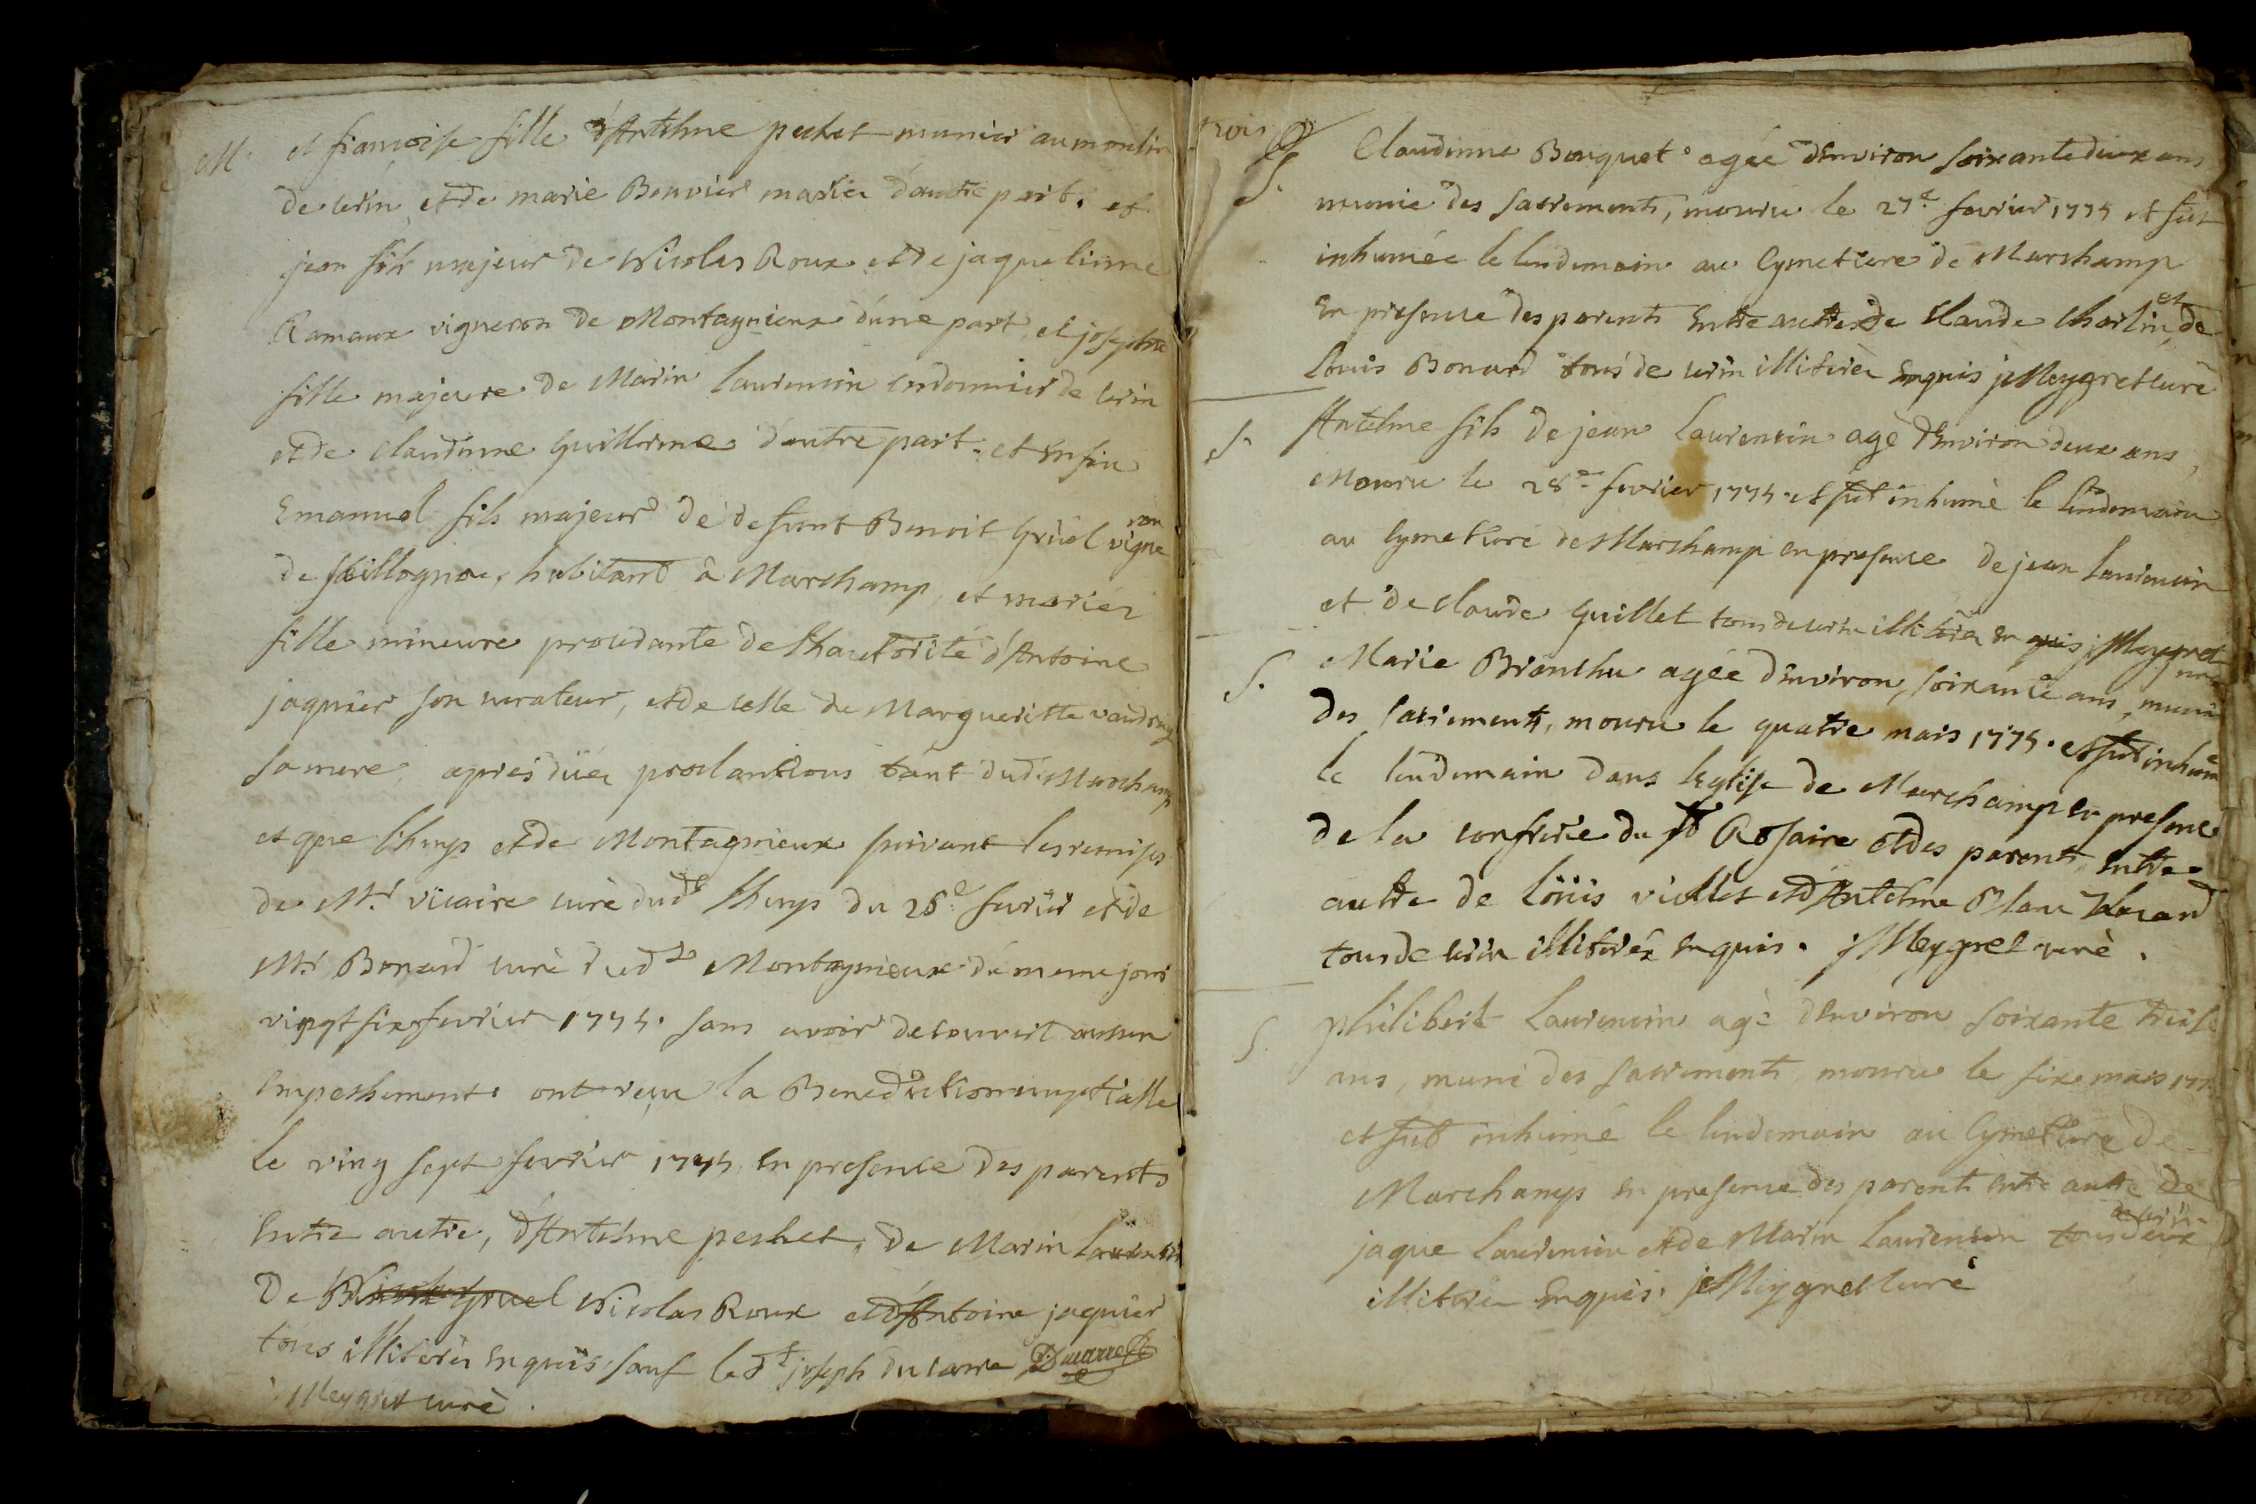 M. et francoise fille d'Antelme pechet munier au moulin
de cerin, et de marie Bouvier mariez d'autre part. et
jean fils majeur de Nicolas Roux et de jaquelinne
Ramaux vigneron de Montagnieux d'une part, et josephte
fille majeure de Marin laurencin cordonnier de cerin
et de claudinne Guillerme d'autre part. et enfin
Emanuel fils majeur de defunt Benoit Gruel vigneron
de habitant à Marchamp, et mariez
fille mineure procedante de l'hautorité d'Antoine
jaquier son curateur, et de celle de Margueritte
sa mere, apres düez proclamations tant dud. Marchamp
et que l'huys et de Montagnieux suivant les remises
de Mr. vicaire curè dudt lhuys du 26e fevrier et de
Mr Bonard curè dudt Montagnieux du meme jour
vingt six fevrier 1775. sans avoir decouvert aucun
empechement. ont reçu la Benediction nuptialle
le ving sept fevrier 1775. en presence des parents
entre autre, d'Antelme pechet, de Marin laurencin
de Nicolas Roux et d'Antoine jaquier
tous illiterés enquis sauf le dt joseph ducarre Ducarre
j Meygret curè.
trois
S. Claudinne Bouquet agée d'environ soixante deux ans
munie des sacrements, mouru le 27e fevrier 1775 et fut
inhumée le lendemain au Cymetiere de Marchamp
en presence des parents entre autre de Claude Charlin, et de
louis Bonard tous de cerin illiterèz enquis j Meygret curè
S. Antelme fils de jean laurencin agè d'environ deux ans,
Mouru le 28e fevrier 1775. et fut inhumè le lendemain
au Cymetiere de Marchamp en presence de jean laurencin
et de claude Guillet tous de cerin illiterèz enquis j Meygret
curè
S. Marie Branchu agée d'environ soixante ans, munie
des sacrements, mouru le quatre mars 1775. et fut inhumè
le lendemain dans l'eglise de Marchamp en presence
de la confrerie du st Rosaire et des parents entre
autre de loüis viollet et d'Antelme Blanc
tous de cerin illiteréz enquis. j Meygret curè.
S. philibert laurencin agè d'environ soixante treise
ans, muni des sacrements mouru le six mars 1775
et fut inhumé le lendemain au Cymetiere de
Marchamp en presence des parents entre autre de
jaque laurencin et de Marin laurencin tous deux
illiterèz enquis. j Meygret curè